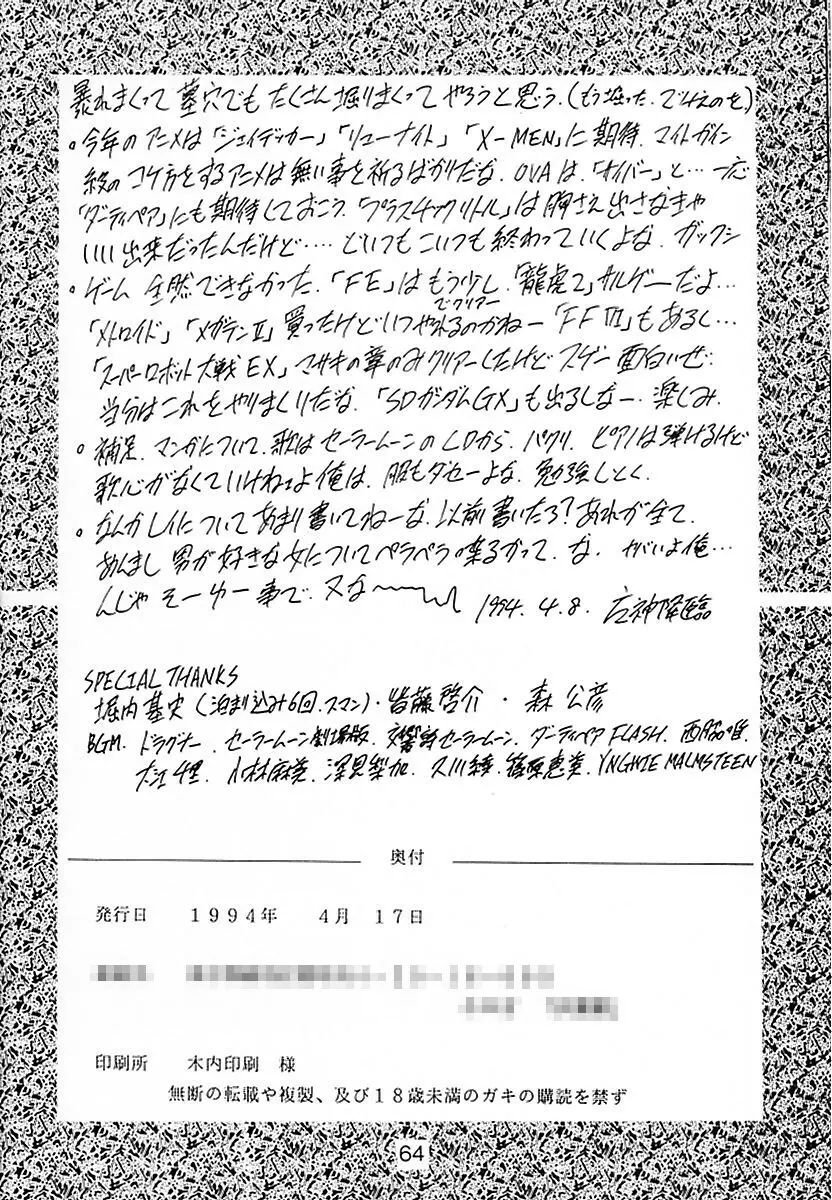 暴れまくって墓穴でもたくさん堀りまくってやろうと思う.(もう堀った.でねえのを)
。今年のアニメは「ジェイデッカー」「リューナイト」「X-MEN」に期待.マイトガイン
級のコケ方をするアニメは無い事を祈るばかりだな.OVAは、「ガイバー」と…一応
「ダーティペア」にも期待しておこう.「プラスチックリトル」は胸さえ出さなきゃ
いい出来だったんだけど‥‥どいつもこいつも終わっていくよな.ガックシ
。ゲーム 全然できなかった.「FE」はもう少しでクリアー.「龍虎2」サルゲーだよ…
「メトロイド」「メガテンⅡ」買ったけどいつやれるのかねー「FFⅥ」もあるし…
「スーパーロボット大戦EX」マサキの章のみクリアーしたけどスゲー面白いぜ.
当分はこれをやりまくりだな.「SDガンダムGX」も出るしなー.楽しみ.
。補足.マンガについて.歌はセーラームーンのLDから.パクリ.ピアノは弾けるけど
歌心がなくていけねェよ俺は.服もダセーよな.勉強しとく.
。なんかレイについてあまり書いてねーな.以前書いたろ?あれが全て.
あんまし男が好きな女についてペラペラ喋るかって.な.ヤバいよ俺…
んじゃそーゆー事で.又な〜
1994.4.8.
SPECIAL THANKS
堀内基史(泊まり込み6回.スマン)・皆藤啓介・森 公彦
BGM.ドラグナー.セーラームーン劇場版.交響詩セーラームーン.ダーティペアFLASH.西脇唯.
大江千里.小林麻美.深見梨加.久川綾.篠原恵美.YNGWIE MALMSTEEN
奥付
発行日 1994年 4月 17日
印刷所 木内印刷 様
無断の転載や複製、及び18歳未満のガキの購読を禁ず
64